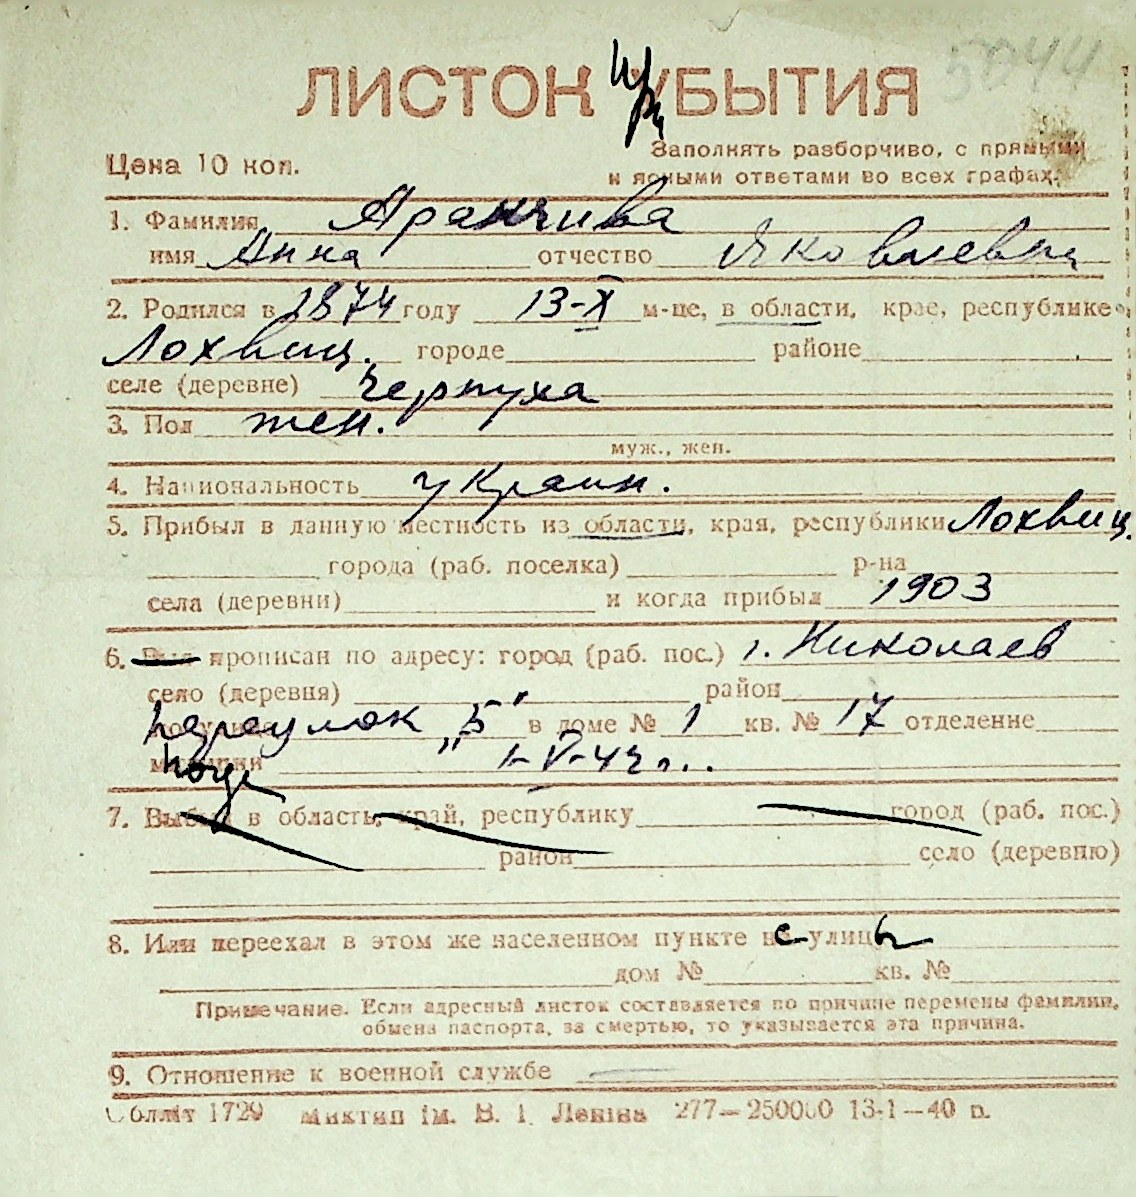 5044
ЛИСТОК При УБЫТИЯ
Цена 10 коп.
Заполнять разборчиво, с прямыми
и ясными ответами во всех графах.
1. Фамилия Аранчива
имя Анна отчество Яковлевна
2. Родился в 1874 году 13-X м-це, в области, крае, республике
Лохвиц. городе районе
селе (деревне) Чернуха
3. Пол жен.
муж., жен.
4. Национальность украин.
5. Прибыл в данную местность из области, края, республики Лохвиц.
города (раб. поселка) р-на
села (деревни) и когда прибыл 1903
6. Был прописан по адресу: город (раб. пос.) г. Николаев
село (деревня) район
переулок „5“ в доме № 1 кв. № 17 отделение
милиции 1-V-42 г.
7. Выбыл в область, край, республику город (раб. пос.)
район село (деревню)
8. Или переехал в этом же населенном пункте с улицы
дом № кв. №
Примечание. Если адресный листок составляется по причине перемены фамилии,
обмена паспорта, за смертью, то указывается эта причина.
9. Отношение к военной службе
Обллiт 1729 Миктип iм. В. I. Ленiна 277—250000 13-1—40 р.